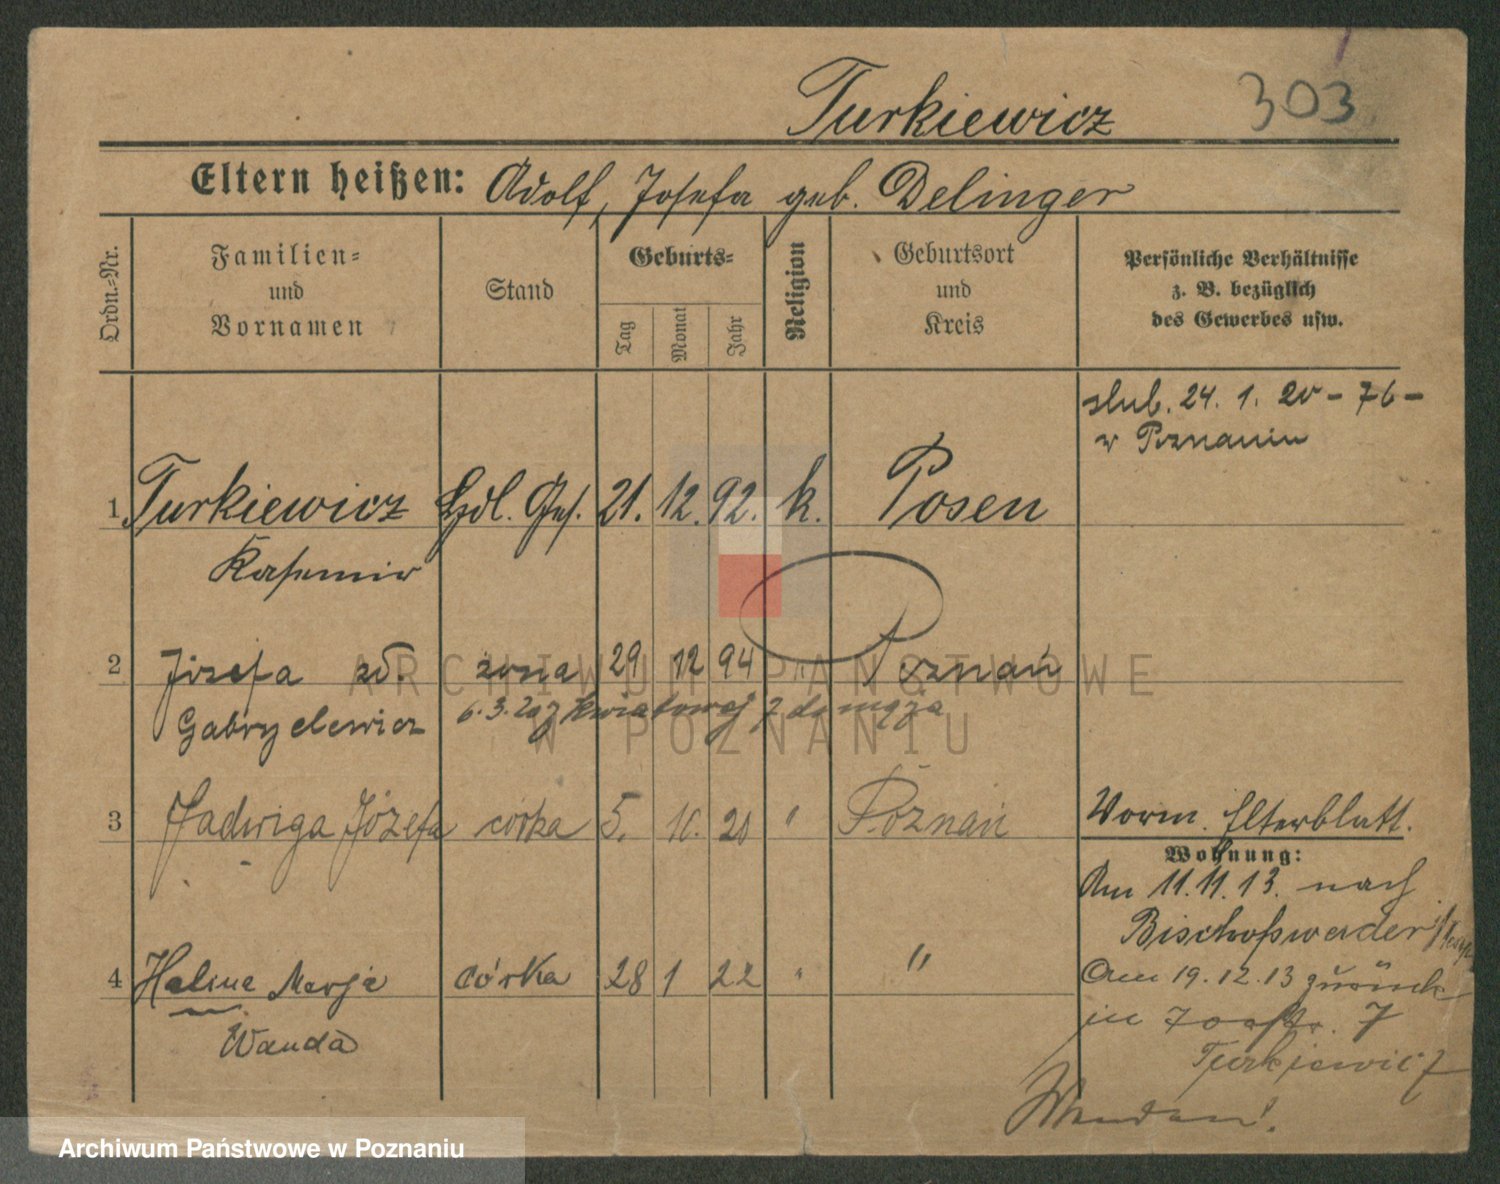 Turkiewicz 303
Eltern heißen: Adolf, Josefa geb. Delinger
Ordn.-Nr.
Familien- und Vornamen
Stand
Geburts-
Tag Monat Jahr
Religion
Geburtsort und Kreis
Persönliche Verhältnisse
z. B. bezüglich
des Gewerbes usw.
ślub. 24. 1. 20 - 76 -
w Poznaniu
1 Turkiewicz Hdl. Geh. 21. 12. 92. k. Posen
Kasimir
2 Józefa zd. żona 29 12 94 Poznań
Gabryelewicz
6. 3. 20 z Kwiatowej 7 do męża
3 Jadwiga Józefa córka 5. 10. 20 " Poznań
Vorm. Elterblatt.
Wohnung:
Am 11.11.13. nach
Bischofswerder
4 Halina Marja córka 28 1 22 " "
Wanda
Am 19.12.13 zurück
in 7
Turkiewicz
ARCHIWUM PAŃSTWOWE
W POZNANIU
Archiwum Państwowe w Poznaniu